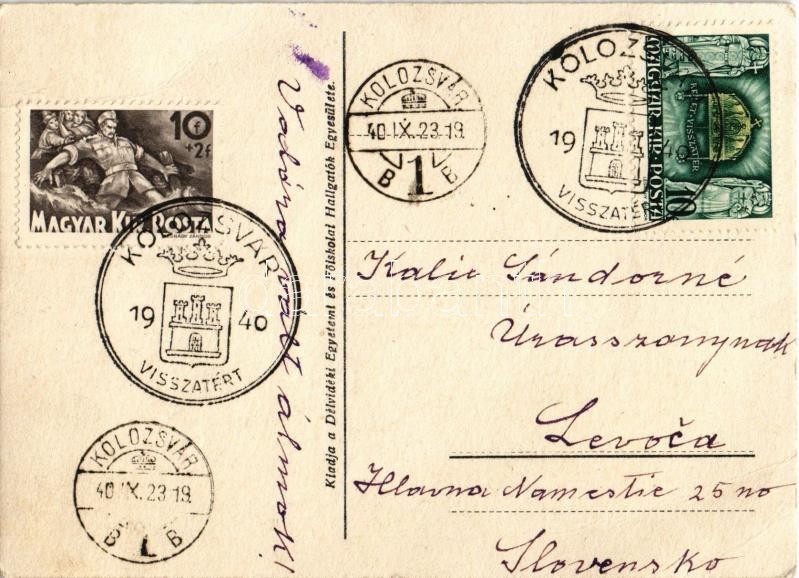 10 f
+2f
MAGYAR KIR. POSTA
KOLOZSVÁR
1940
VISSZATÉRT
KOLOZSVÁR
40 IX. 23-19
B 1 B
Valóra vált álmok!
Kiadja a Délvidéki Egyetemi és Főiskolai Hallgatók Egyesülete.
KOLOZSVÁR
40 IX. 23-19
B 1 B
KOLOZS
1940
VISSZATÉRT
MAGYAR KIR. POSTA
KELET-VISSZATÉR
10
Kalix Sándorné
Úrasszonynak
Levoča
Hlavna Namestie 25 no
Slovensko